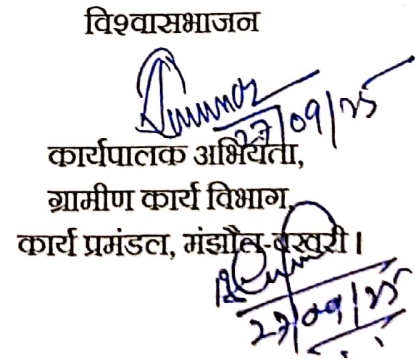 विश्वासभाजन
27/09/25
कार्यपालक अभियंता,
ग्रामीण कार्य विभाग,
कार्य प्रमंडल, मंझौल-बखरी।
27/09/25